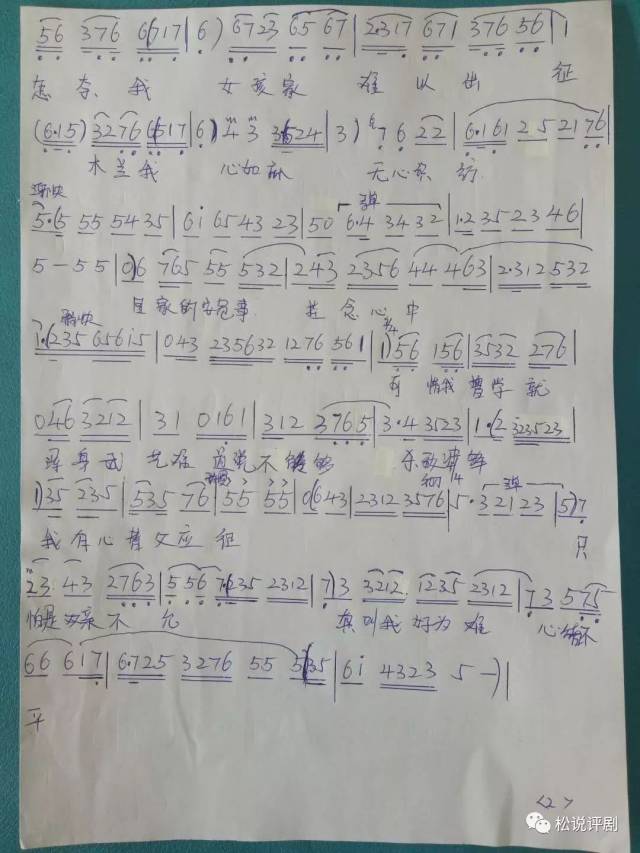 56 376 6(717|6) 6723 65 67|2·317 671 376 56|1
怎奈我 女孩家 难以出征
(6·15) 3276 6(517|6) 43 3524|3) 76 22|6·161 25 21 76|
木兰我 心如 无心 纺
渐快 弹
5·(6 55 54 35|6i 65 43 23|50 6·4 34 32|1·2 35 23 46|
5-55|0)6 765 55 532|243 2356 44 463|2·312 532
国家的安危事 挂念心中
稍快 2/4
1·(235 656i5|043 235632 1276 561|1)56 156|3532 276|
可惜我曾学就
046 3212|31 0161|312 23765|3·4 3523|1·(2 323523|
浑身武艺难道说不能够 杀敌
弹
1)35 235|535 76|55 55|0(643|2312 3576|5·3 21 23|5)7
我有心替父应征 只
23 43 2763|5 56 7(235 2312|7)3 3212 1235 2312|73 575
怕是父亲不允 真叫我好为难 心不
66 617|6·725 3276 55 5(35|6i 4323 5-)|
平
<2>
松说评剧